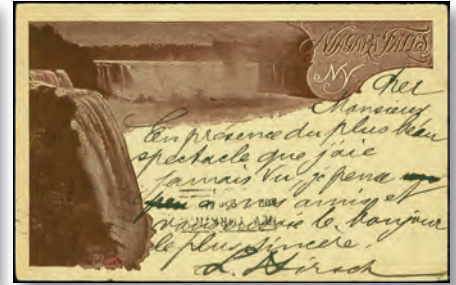 NIAGARA FALLS
NY.
Cher
Monsieur
En présence du plus beau
spectacle que j'aie
jamais vu, je pense
à mes amis et
vous envoie le bonjour
le plus sincère.
L. Hirsch